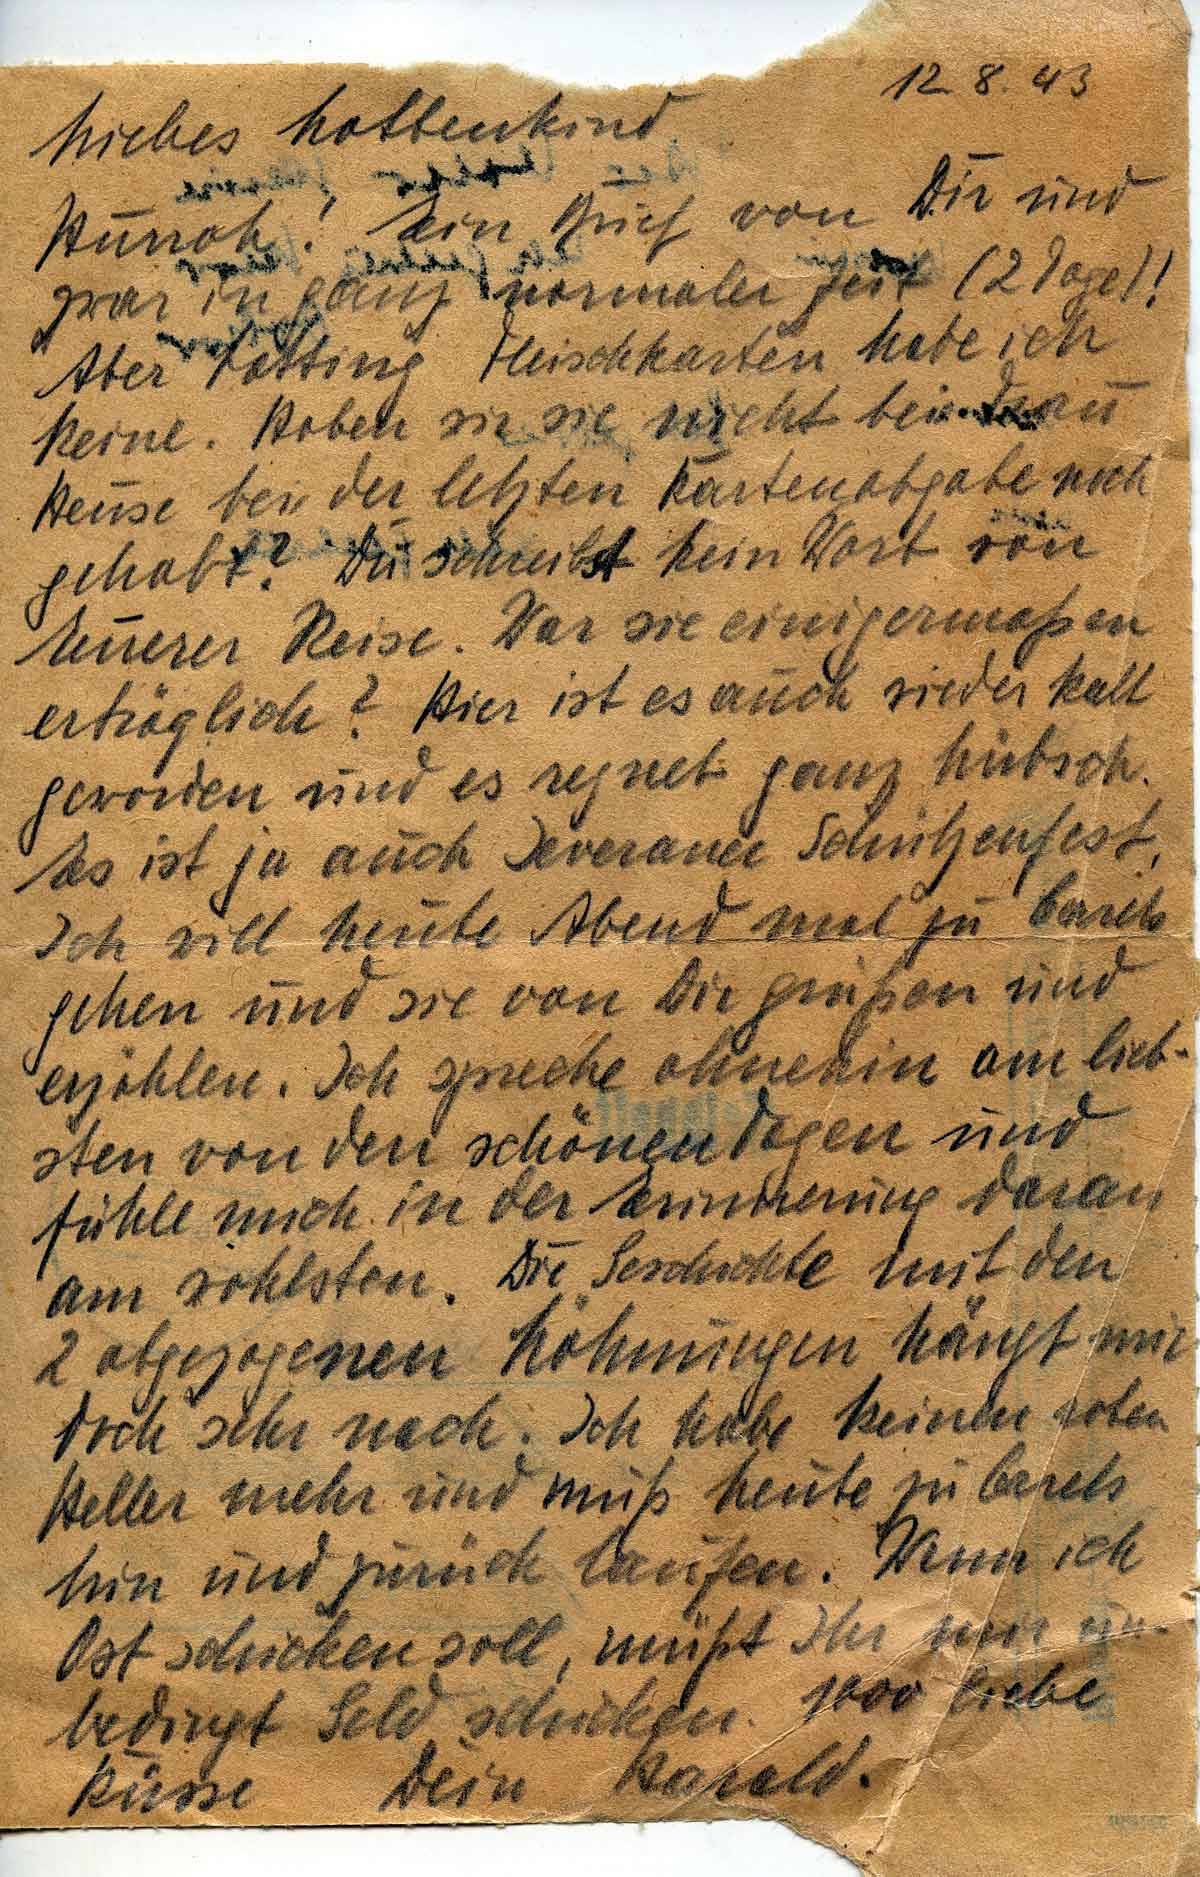 12. 8. 43
Liebes Lottenkind
Hurrah! Ein Brief von Dir und
zwar in ganz normaler Zeit (2 Tage)!
Aber Lotting Fleischkarten habe ich
keine. Haben wir sie nicht bei Frau
Heuse bei der letzten Kartenabgabe noch
gehabt? Du schreibst kein Wort von
Eurer Reise. War sie einigermaßen
erträglich? Hier ist es auch wieder kalt
geworden und es regnet ganz hübsch.
Es ist ja auch Jeveraner Schützenfest,
Ich will heute Abend mal zu Carels
gehen und sie von Dir grüßen und
erzählen. Ich spreche ohnehin am lieb-
sten von den schönen Tagen und
fühle mich in der Erinnerung daran
am wohlsten. Die Geschichte mit den
2 abgezogenen Löhnungen hängt mir
doch sehr nach. Ich habe keinen roten
Heller mehr und muß heute zu Carels
hin und zurück laufen. Wenn ich
Obst schicken soll, müßt Ihr mir un-
bedingt Geld schicken. 1000 liebe
Küsse Dein Harald.